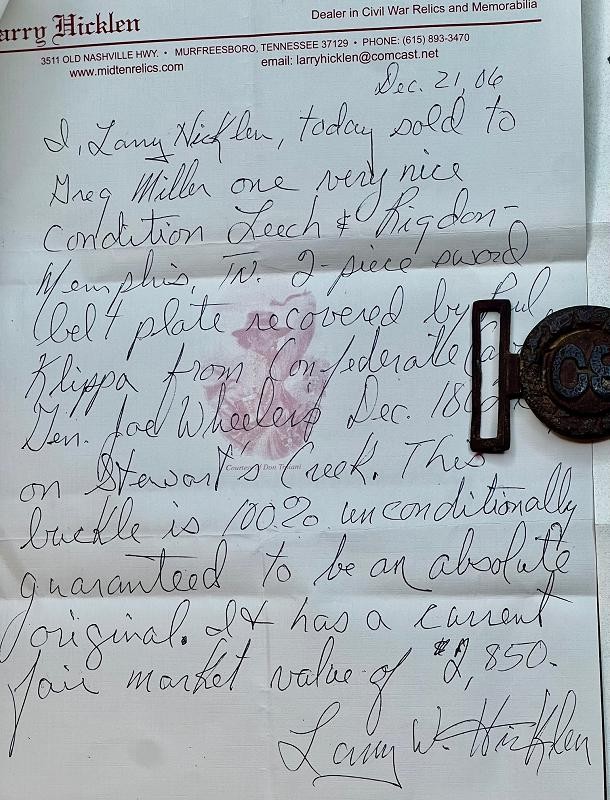 arry Hicklen
Dealer in Civil War Relics and Memorabilia
3511 OLD NASHVILLE HWY. • MURFREESBORO, TENNESSEE 37129 • PHONE: (615) 893-3470
www.midtenrelics.com email: larryhicklen@comcast.net
Dec. 21, 06
I, Larry Hicklen, today sold to
Greg Miller one very nice
condition Leech & Rigdon-
Memphis, TN. 2-piece sword
belt plate recovered by
Klippa from Confederate
Gen. Joe Wheeler's Dec.
on Stewart's Creek. This
buckle is 100% unconditionally
guaranteed to be an absolute
original. It has a current
fair market value of $2,850.
Larry W. Hicklen
Courtesy of Don Troiani
CS